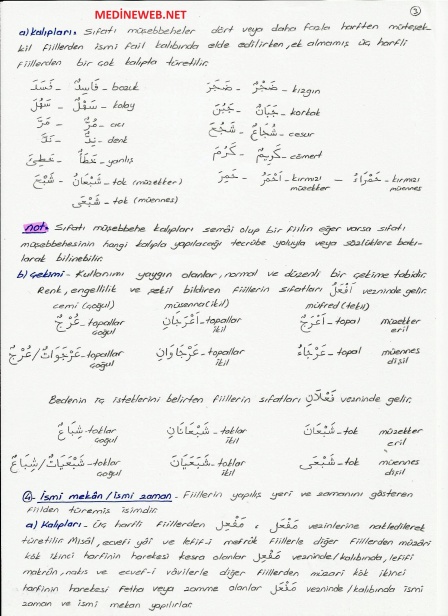 MEDİNEWEB.NET
3
a) kalıpları: Sıfatı müşebbeheler dört veya daha fazla harften müteşek-
kil fiillerden ismi fail kalıbında elde edilirken, ek almamış üç harfli
fiillerden bir çok kalıpta türetilir.
فَسَدَ - فَاسِدٌ - bozuk ضَجَرَ - ضَجْرٌ - kızgın
سَهُلَ - سَهْلٌ - kolay جَبُنَ - جَبَانٌ - korkak
مَرَّ - مُرٌّ - acı شَجُعَ - شُجَاعٌ - cesur
نَدَّ - نِدٌّ - denk كَرُمَ - كَرِيمٌ - cömert
خَطِئَ - خَطَأٌ - yanlış
شَبِعَ - شَبْعَانُ - tok (müzekker) حَمِرَ - أَحْمَرُ - kırmızı müzekker - حَمْرَاءُ - kırmızı müennes
شَبْعَى - tok (müennes)
not: Sıfatı müşebbehe kalıpları semâî olup bir fiilin eğer varsa sıfatı
müşebbehesinin hangi kalıpla yapılacağı tecrübe yoluyla veya sözlüklere bakı-
larak bilinebilir.
b) Çekimi - Kullanımı yaygın olanlar, normal ve düzenli bir çekime tabidir.
Renk, engellilik ve şekil bildiren fiillerin sıfatları أَفْعَلُ vezninde gelir.
cemi (çoğul) müsenna (ikil) müfred (tekil)
عُرْجٌ - topallar çoğul أَعْرَجَانِ - topallar ikil أَعْرَجُ - topal müzekker eril
عَرْجَوَاتٌ / عُرْجٌ - topallar çoğul عَرْجَاوَانِ - topallar ikil عَرْجَاءُ - topal müennes dişil
Bedenin iç isteklerini belirten fiillerin sıfatları فَعْلَانُ vezninde gelir.
شِبَاعٌ - toklar çoğul شَبْعَانَانِ - toklar ikil شَبْعَانُ - tok müzekker eril
شَبْعَيَاتٌ / شِبَاعٌ - toklar çoğul شَبْعَيَانِ - toklar ikil شَبْعَى - tok müennes dişil
4 - İsmi mekân / ismi zaman - Fiillerin yapılış yeri ve zamanını gösteren
fiilden türemiş isimdir.
a) Kalıpları - Üç harfli fiillerden مَفْعَل , مَفْعِل vezinlerine nakledilerek
türetilir. Misâl, ecvefi yâî ve lefif-i mefrûk fiillerle diğer fiillerden müzâri
kök ikinci harfinin harekesi kesra olanlar مَفْعِل vezninde/kalıbında, lefifi
makrûn, nakıs ve ecvef-i vâvîlerle diğer fiillerden müzari kök ikinci
harfinin harekesi fetha veya zamme olanlar مَفْعَل vezninde/kalıbında ismi
zaman ve ismi mekan yapılırlar.